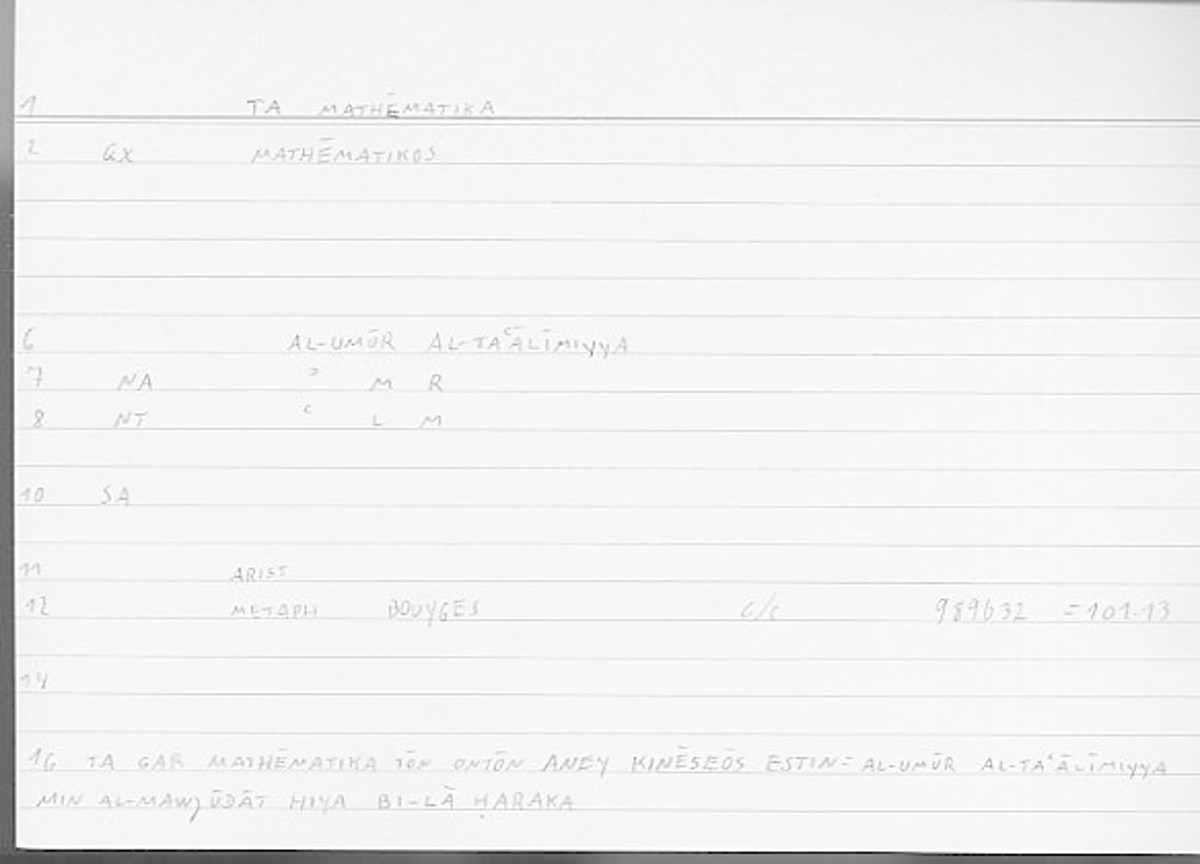 1 TA MATHĒMATIKA
2 GX MATHĒMATIKOS
6 AL-UMŪR AL-TAʿĀLĪMIYYA
7 NA ʾ M R
8 NT ʿ L M
10 SA
11 ARIST
12 METAPH BOUYGES C/C 989b32 =101.13
14
16 TA GAR MATHĒMATIKA TŌN ONTŌN ANEY KINĒSEŌS ESTIN= AL-UMŪR AL-TAʿĀLĪMIYYA
MIN AL-MAWJŪDĀT HIYA BI-LĀ ḤARAKA